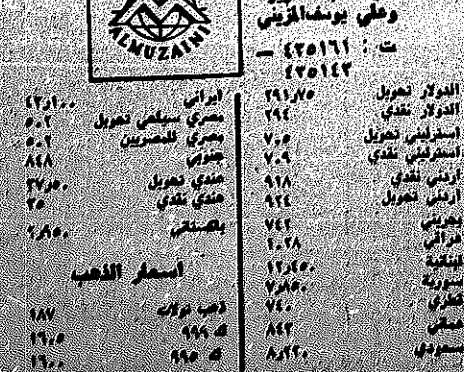 ALMUZAINI
وعلي يوسف المزيني
ت : ٤٣٥١٦١ —
٤٣٥١٤٣
الدولار تحويل ٢٩١٫٧٥
الدولار نقدي ٢٩٤
استرليني تحويل ٧٠٥
استرليني نقدي ٧٠٩
اردني نقدي ٩١٨
اردني تحويل ٩٢٤
بحريني ٧٤٢
عراقي ١٠٢٨
لبنانية ١٢٫٤٥٠
سورية ٧٫٨٥٠
قطري ٧٤٠
عماني ٨٤٢
سعودي ٨٫٢٢٠
ايراني ٤٢٫١٠٠
مصري سياحي تحويل ٥٠٢
مصري للمصريين ٥٠٢
جنوبي ٨٤٨
هندي تحويل ٣٧٫٥٠
هندي نقدي ٣٥
باكستاني
اسعار الذهب
ذهب تولات ١٨٧
ك ٩٩٩ ١٦٠٥
ك ٩٩٥ ١٦٠٠